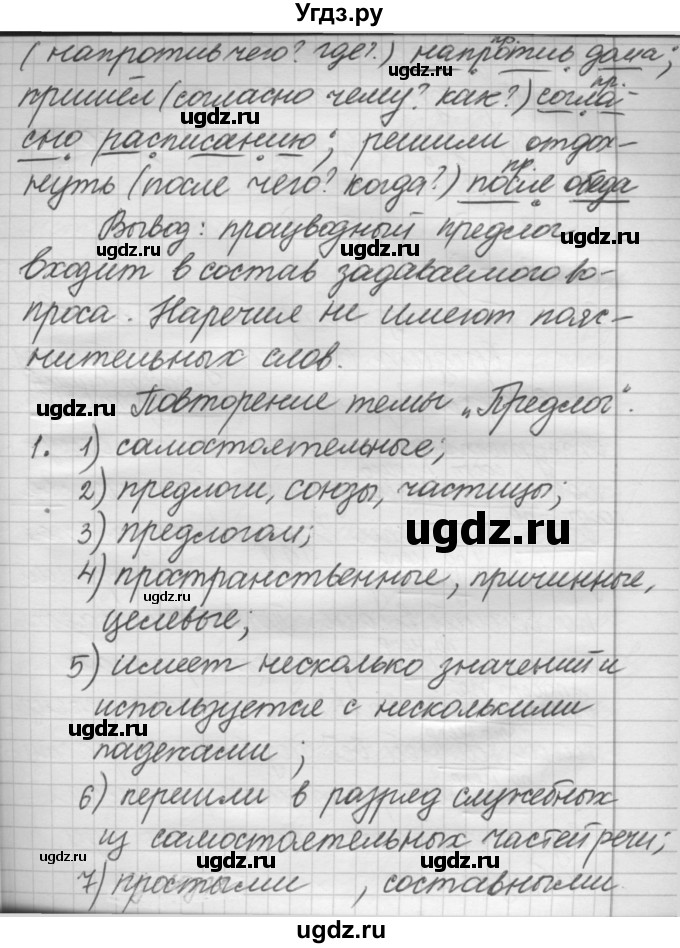 Угдз.ру
пр.
(напротив чего? где?) напротив дома;
ugdz.ru
пр.
пришёл (согласно чему? как?) согла-
ugdz.ru
сно расписанию; решили отдох-
пр.
нуть (после чего? когда?) после обеда
Вывод: працводный предлог
ugdz.ru ugdz.ru
входит в состав задаваемого во-
проса. Наречия не имеют пояс-
нительных слов.
ugdz.ru Повторение темы „Предлог“.
1. 1) самостоятельные;
2) предлоги, союзы, частицы;
3) предлогом; ugdz.ru
4) пространственные, причинные,
ugdz.ru
целевые;
5) имеет несколько значений и
используется с несколькими
ugdz.ru
падежами;
6) перешли в разряд служебных
из самостоятельных частей речи;
ugdz.ru ugdz.ru ugdz.ru
7) простыми , составными
ugdz.ru